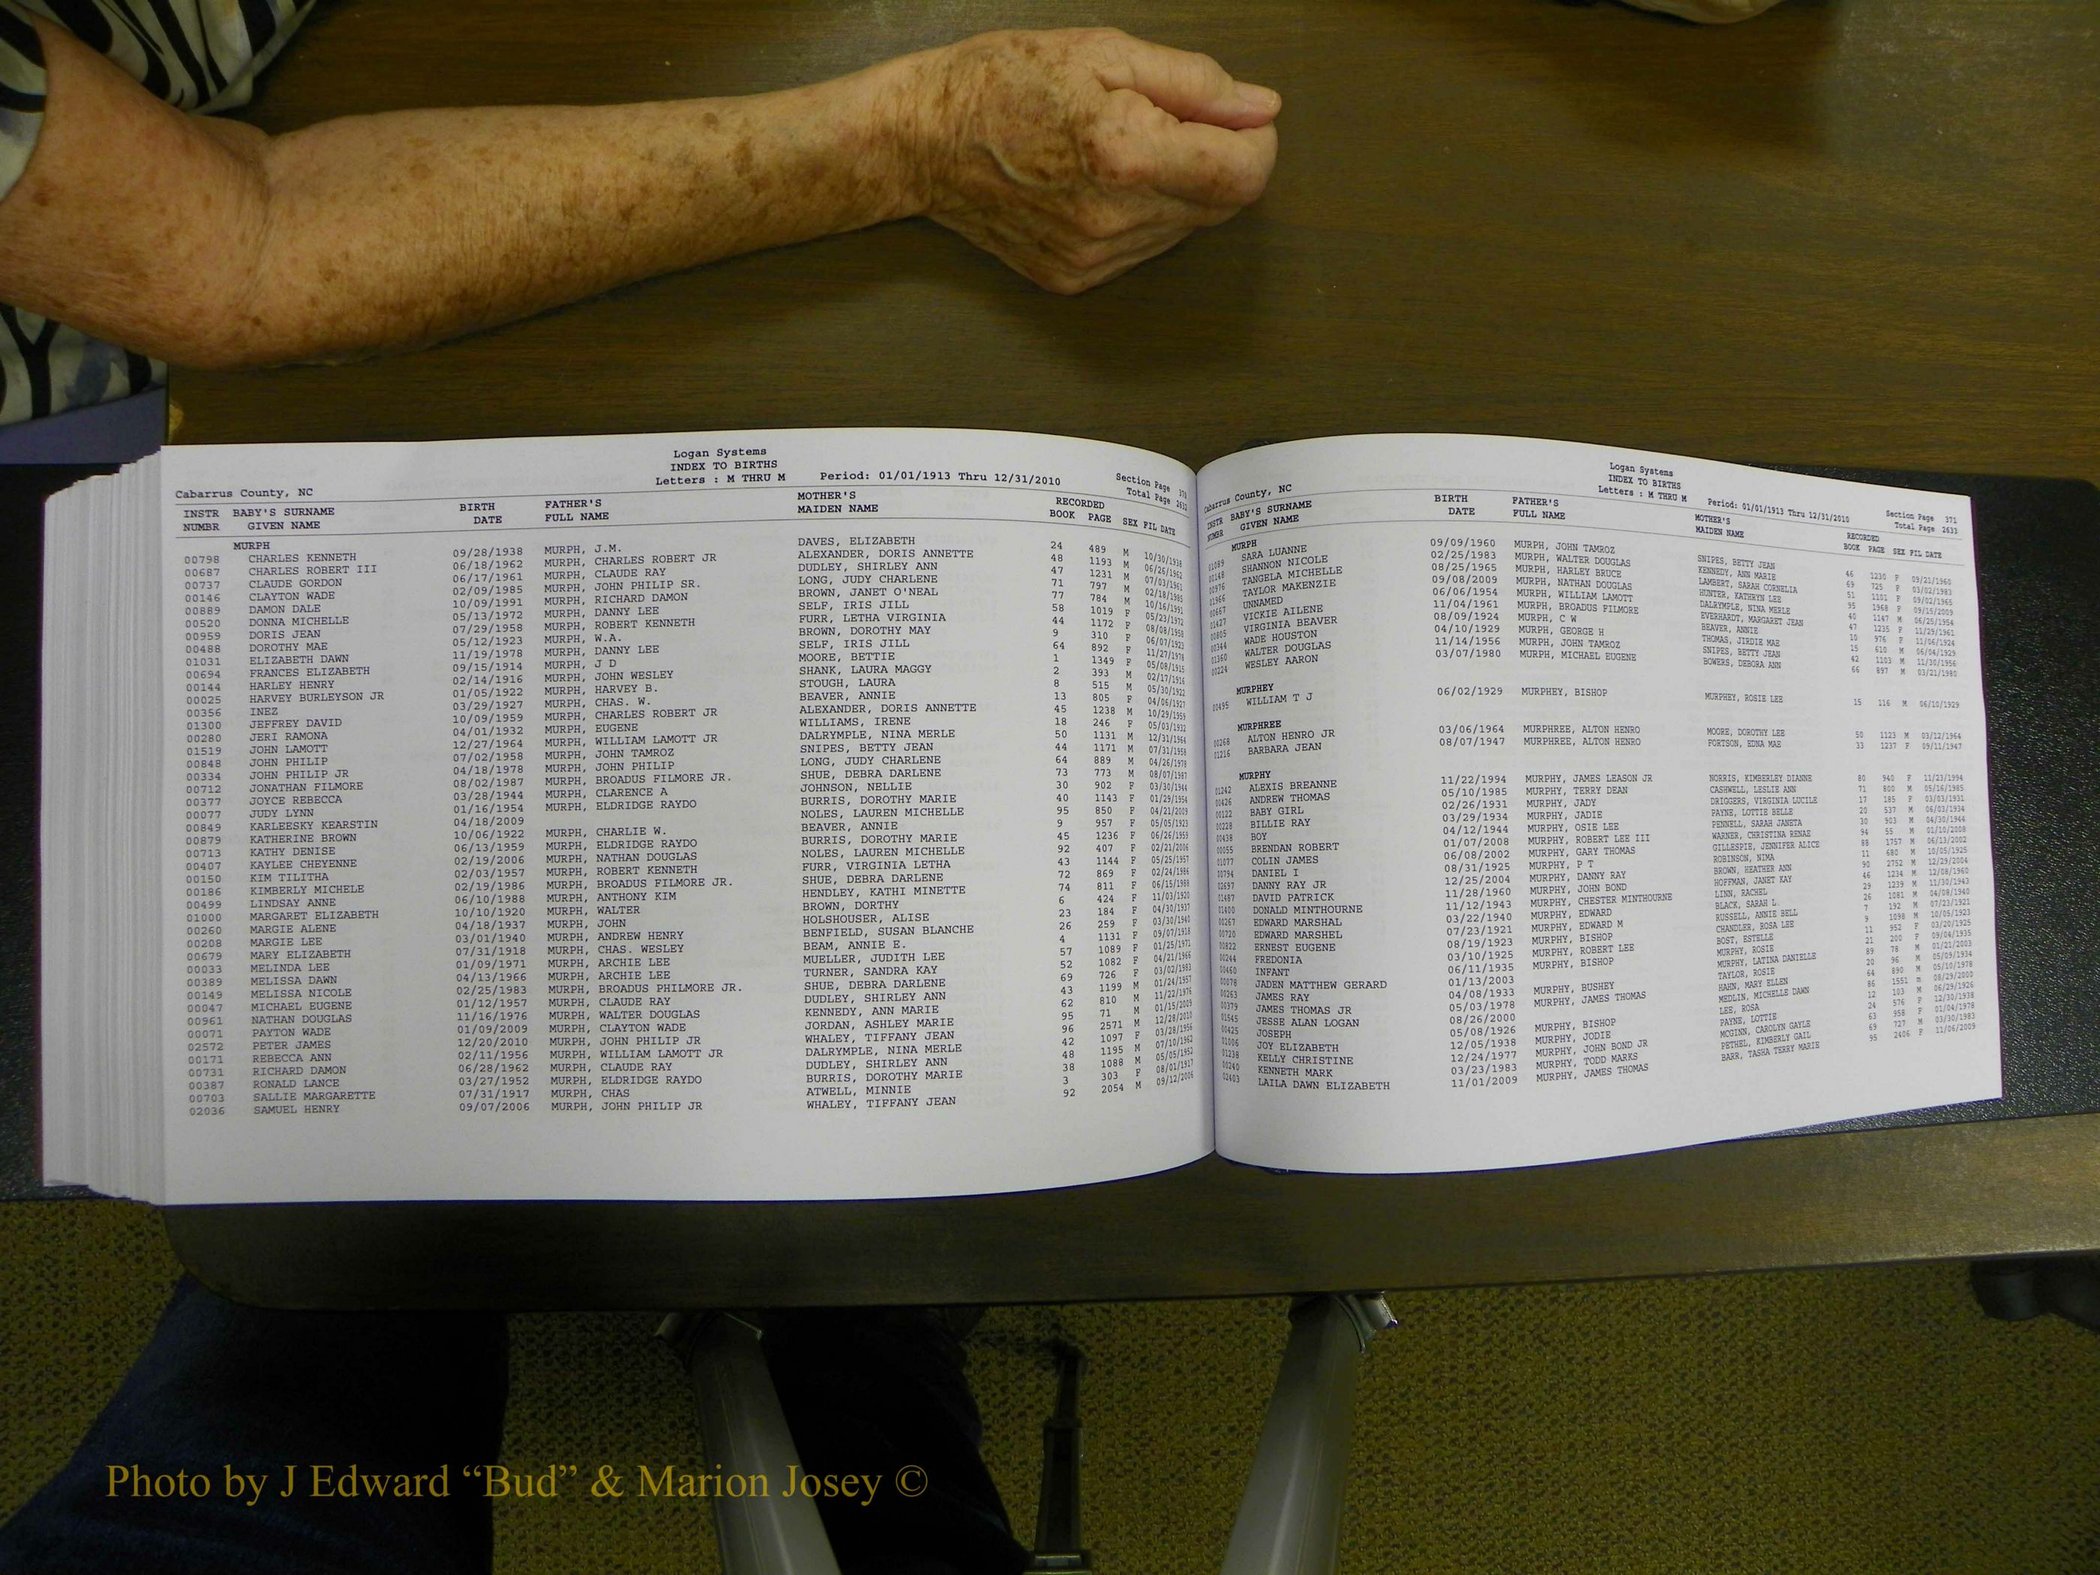 Logan Systems
INDEX TO BIRTHS
Letters : M THRU M Period: 01/01/1913 Thru 12/31/2010
Cabarrus County, NC Section Page 370
Total Page 2632
INSTR BABY'S SURNAME BIRTH FATHER'S MOTHER'S RECORDED
NUMBR GIVEN NAME DATE FULL NAME MAIDEN NAME BOOK PAGE SEX FIL DATE
MURPH
00798 CHARLES KENNETH 09/28/1938 MURPH, J.M. DAVES, ELIZABETH 24 489 M 10/30/1938
00687 CHARLES ROBERT III 06/18/1962 MURPH, CHARLES ROBERT JR ALEXANDER, DORIS ANNETTE 48 1193 M 06/26/1962
00737 CLAUDE GORDON 06/17/1961 MURPH, CLAUDE RAY DUDLEY, SHIRLEY ANN 47 1231 M 07/03/1961
00146 CLAYTON WADE 02/09/1985 MURPH, JOHN PHILIP SR. LONG, JUDY CHARLENE 71 797 M 02/18/1985
00889 DAMON DALE 10/09/1991 MURPH, RICHARD DAMON BROWN, JANET O'NEAL 77 784 M 10/16/1991
00520 DONNA MICHELLE 05/13/1972 MURPH, DANNY LEE SELF, IRIS JILL 58 1019 F 05/23/1972
00959 DORIS JEAN 07/29/1958 MURPH, ROBERT KENNETH FURR, LETHA VIRGINIA 44 1172 F 08/08/1958
00488 DOROTHY MAE 05/12/1923 MURPH, W.A. BROWN, DOROTHY MAY 9 310 F 06/07/1923
01031 ELIZABETH DAWN 11/19/1978 MURPH, DANNY LEE SELF, IRIS JILL 64 892 F 11/27/1978
00694 FRANCES ELIZABETH 09/15/1914 MURPH, J D MOORE, BETTIE 1 1349 F 05/08/1915
00144 HARLEY HENRY 02/14/1916 MURPH, JOHN WESLEY SHANK, LAURA MAGGY 2 393 M 02/17/1916
00025 HARVEY BURLEYSON JR 01/05/1922 MURPH, HARVEY B. STOUGH, LAURA 8 515 M 05/30/1922
00356 INEZ 03/29/1927 MURPH, CHAS. W. BEAVER, ANNIE 13 805 F 04/06/1927
01300 JEFFREY DAVID 10/09/1959 MURPH, CHARLES ROBERT JR ALEXANDER, DORIS ANNETTE 45 1238 M 10/29/1959
00280 JERI RAMONA 04/01/1932 MURPH, EUGENE WILLIAMS, IRENE 18 246 F 05/03/1932
01519 JOHN LAMOTT 12/27/1964 MURPH, WILLIAM LAMOTT JR DALRYMPLE, NINA MERLE 50 1131 M 12/31/1964
00848 JOHN PHILIP 07/02/1958 MURPH, JOHN TAMROZ SNIPES, BETTY JEAN 44 1171 M 07/31/1958
00334 JOHN PHILIP JR 04/18/1978 MURPH, JOHN PHILIP LONG, JUDY CHARLENE 64 889 M 04/26/1978
00712 JONATHAN FILMORE 08/02/1987 MURPH, BROADUS FILMORE JR. SHUE, DEBRA DARLENE 73 773 M 08/07/1987
00377 JOYCE REBECCA 03/28/1944 MURPH, CLARENCE A JOHNSON, NELLIE 30 902 F 03/30/1944
00077 JUDY LYNN 01/16/1954 MURPH, ELDRIDGE RAYDO BURRIS, DOROTHY MARIE 40 1143 F 01/29/1954
00849 KARLEESKY KEARSTIN 04/18/2009 NOLES, LAUREN MICHELLE 95 850 F 04/21/2009
00879 KATHERINE BROWN 10/06/1922 MURPH, CHARLIE W. BEAVER, ANNIE 9 957 F 05/05/1923
00713 KATHY DENISE 06/13/1959 MURPH, ELDRIDGE RAYDO BURRIS, DOROTHY MARIE 45 1236 F 06/26/1959
00407 KAYLEE CHEYENNE 02/19/2006 MURPH, NATHAN DOUGLAS NOLES, LAUREN MICHELLE 92 407 F 02/21/2006
00150 KIM TILITHA 02/03/1957 MURPH, ROBERT KENNETH FURR, VIRGINIA LETHA 43 1144 F 05/25/1957
00186 KIMBERLY MICHELE 02/19/1986 MURPH, BROADUS FILMORE JR. SHUE, DEBRA DARLENE 72 869 F 02/24/1986
00499 LINDSAY ANNE 06/10/1988 MURPH, ANTHONY KIM HENDLEY, KATHI MINETTE 74 811 F 06/15/1988
01000 MARGARET ELIZABETH 10/10/1920 MURPH, WALTER BROWN, DORTHY 6 424 F 11/03/1920
00260 MARGIE ALENE 04/18/1937 MURPH, JOHN HOLSHOUSER, ALISE 23 184 F 04/30/1937
00208 MARGIE LEE 03/01/1940 MURPH, ANDREW HENRY BENFIELD, SUSAN BLANCHE 26 259 F 03/30/1940
00679 MARY ELIZABETH 07/31/1918 MURPH, CHAS. WESLEY BEAM, ANNIE E. 4 1131 F 09/07/1918
00033 MELINDA LEE 01/09/1971 MURPH, ARCHIE LEE MUELLER, JUDITH LEE 57 1089 F 01/25/1971
00389 MELISSA DAWN 04/13/1966 MURPH, ARCHIE LEE TURNER, SANDRA KAY 52 1082 F 04/21/1966
00149 MELISSA NICOLE 02/25/1983 MURPH, BROADUS PHILMORE JR. SHUE, DEBRA DARLENE 69 726 F 03/02/1983
00047 MICHAEL EUGENE 01/12/1957 MURPH, CLAUDE RAY DUDLEY, SHIRLEY ANN 43 1199 M 01/24/1957
00961 NATHAN DOUGLAS 11/16/1976 MURPH, WALTER DOUGLAS KENNEDY, ANN MARIE 62 810 M 11/22/1976
00071 PAYTON WADE 01/09/2009 MURPH, CLAYTON WADE JORDAN, ASHLEY MARIE 95 71 M 01/15/2009
02572 PETER JAMES 12/20/2010 MURPH, JOHN PHILIP JR WHALEY, TIFFANY JEAN 96 2571 M 12/28/2010
00171 REBECCA ANN 02/11/1956 MURPH, WILLIAM LAMOTT JR DALRYMPLE, NINA MERLE 42 1097 F 03/28/1956
00731 RICHARD DAMON 06/28/1962 MURPH, CLAUDE RAY DUDLEY, SHIRLEY ANN 48 1195 M 07/10/1962
00387 RONALD LANCE 03/27/1952 MURPH, ELDRIDGE RAYDO BURRIS, DOROTHY MARIE 38 1088 M 05/05/1952
00703 SALLIE MARGARETTE 07/31/1917 MURPH, CHAS ATWELL, MINNIE 3 303 F 08/01/1917
02036 SAMUEL HENRY 09/07/2006 MURPH, JOHN PHILIP JR WHALEY, TIFFANY JEAN 92 2054 M 09/12/2006
Logan Systems
INDEX TO BIRTHS
Letters : M THRU M Period: 01/01/1913 Thru 12/31/2010
Cabarrus County, NC Section Page 371
Total Page 2633
INSTR BABY'S SURNAME BIRTH FATHER'S MOTHER'S RECORDED
NUMBR GIVEN NAME DATE FULL NAME MAIDEN NAME BOOK PAGE SEX FIL DATE
MURPH
01089 SARA LUANNE 09/09/1960 MURPH, JOHN TAMROZ SNIPES, BETTY JEAN 46 1230 F 09/21/1960
00148 SHANNON NICOLE 02/25/1983 MURPH, WALTER DOUGLAS KENNEDY, ANN MARIE 69 725 F 03/02/1983
00976 TANGELA MICHELLE 08/25/1965 MURPH, HARLEY BRUCE LAMBERT, SARAH CORNELIA 51 1101 F 09/02/1965
01966 TAYLOR MAKENZIE 09/08/2009 MURPH, NATHAN DOUGLAS HUNTER, KATHRYN LEE 95 1968 F 09/15/2009
00667 UNNAMED 06/06/1954 MURPH, WILLIAM LAMOTT DALRYMPLE, NINA MERLE 40 1147 M 06/25/1954
01427 VICKIE AILENE 11/04/1961 MURPH, BROADUS FILMORE EVERHARDT, MARGARET JEAN 47 1235 F 11/29/1961
00805 VIRGINIA BEAVER 08/09/1924 MURPH, C W BEAVER, ANNIE 10 976 F 11/06/1924
00344 WADE HOUSTON 04/10/1929 MURPH, GEORGE H THOMAS, JIRDIE MAE 15 610 M 06/04/1929
01360 WALTER DOUGLAS 11/14/1956 MURPH, JOHN TAMROZ SNIPES, BETTY JEAN 42 1103 M 11/30/1956
00224 WESLEY AARON 03/07/1980 MURPH, MICHAEL EUGENE BOWERS, DEBORA ANN 66 897 M 03/21/1980
MURPHEY
00495 WILLIAM T J 06/02/1929 MURPHEY, BISHOP MURPHEY, ROSIE LEE 15 116 M 06/10/1929
MURPHREE
00268 ALTON HENRO JR 03/06/1964 MURPHREE, ALTON HENRO MOORE, DOROTHY LEE 50 1123 M 03/12/1964
01216 BARBARA JEAN 08/07/1947 MURPHREE, ALTON HENRO PORTSON, EDNA MAE 33 1237 F 09/11/1947
MURPHY
01242 ALEXIS BREANNE 11/22/1994 MURPHY, JAMES LEASON JR NORRIS, KIMBERLEY DIANNE 80 940 F 11/23/1994
00426 ANDREW THOMAS 05/10/1985 MURPHY, TERRY DEAN CASHWELL, LESLIE ANN 71 800 M 05/16/1985
00122 BABY GIRL 02/26/1931 MURPHY, JADY DRIGGERS, VIRGINIA LUCILE 17 185 F 03/03/1931
00228 BILLIE RAY 03/29/1934 MURPHY, JADIE PAYNE, LOTTIE BELLE 20 537 M 06/03/1934
00438 BOY 04/12/1944 MURPHY, OSIE LEE PENNELL, SARAH JANETA 30 903 M 04/30/1944
00055 BRENDAN ROBERT 01/07/2008 MURPHY, ROBERT LEE III WARNER, CHRISTINA RENAE 94 55 M 01/10/2008
01077 COLIN JAMES 06/08/2002 MURPHY, GARY THOMAS GILLESPIE, JENNIFER ALICE 88 1757 M 06/13/2002
00794 DANIEL I 08/31/1925 MURPHY, P T ROBINSON, NIMA 11 680 M 10/05/1925
02697 DANNY RAY JR 12/25/2004 MURPHY, DANNY RAY BROWN, HEATHER ANN 90 2752 M 12/29/2004
01487 DAVID PATRICK 11/28/1960 MURPHY, JOHN BOND HOFFMAN, JANET KAY 46 1234 M 12/08/1960
01400 DONALD MINTHOURNE 11/12/1943 MURPHY, CHESTER MINTHOURNE LINN, RACHEL 29 1239 M 11/30/1943
00267 EDWARD MARSHAL 03/22/1940 MURPHY, EDWARD BLACK, SARAH L. 26 1081 M 04/08/1940
00720 EDWARD MARSHEL 07/23/1921 MURPHY, EDWARD M RUSSELL, ANNIE BELL 7 192 M 07/23/1921
00822 ERNEST EUGENE 08/19/1923 MURPHY, BISHOP CHANDLER, ROSA LEE 9 1098 M 10/05/1923
00244 FREDONIA 03/10/1925 MURPHY, ROBERT LEE BOST, ESTELLE 11 952 F 03/20/1925
00460 INFANT 06/11/1935 MURPHY, BISHOP MURPHY, ROSIE 21 200 F 09/04/1935
00078 JADEN MATTHEW GERARD 01/13/2003 MURPHY, LATINA DANIELLE 89 78 M 01/21/2003
00263 JAMES RAY 04/08/1933 MURPHY, BUSHEY TAYLOR, ROSIE 20 96 M 05/09/1934
00379 JAMES THOMAS JR 05/03/1978 MURPHY, JAMES THOMAS HAHN, MARY ELLEN 64 890 M 05/10/1978
01545 JESSE ALAN LOGAN 08/26/2000 MEDLIN, MICHELLE DAWN 86 1551 m 08/29/2000
00425 JOSEPH 05/08/1926 MURPHY, BISHOP LEE, ROSA 12 103 M 06/29/1926
01006 JOY ELIZABETH 12/05/1938 MURPHY, JODIE PAYNE, LOTTIE 24 576 F 12/30/1938
01238 KELLY CHRISTINE 12/24/1977 MURPHY, JOHN BOND JR MCGINN, CAROLYN GAYLE 63 958 F 01/04/1978
00240 KENNETH MARK 03/23/1983 MURPHY, TODD MARKS PETHEL, KIMBERLY GAIL 69 727 M 03/30/1983
02403 LAILA DAWN ELIZABETH 11/01/2009 MURPHY, JAMES THOMAS BARR, TASHA TERRY MARIE 95 2406 F 11/06/2009
Photo by J Edward “Bud” & Marion Josey ©